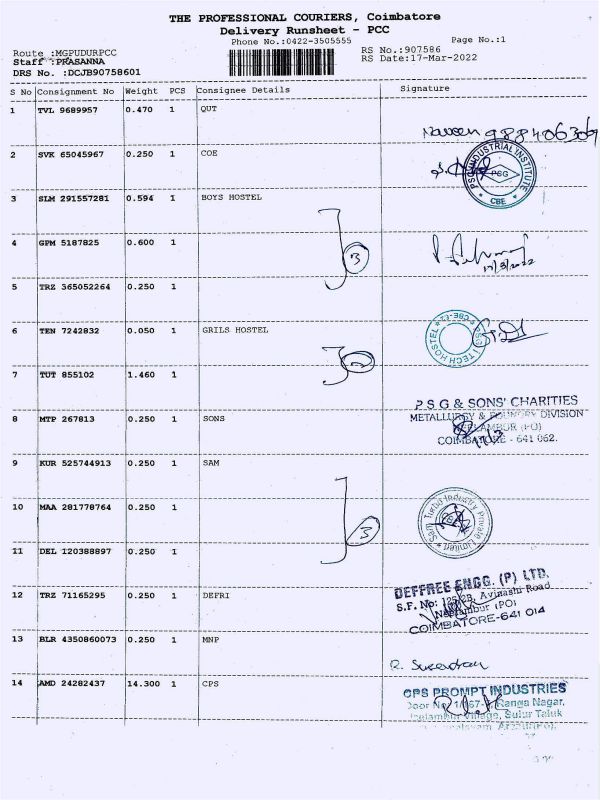 THE PROFESSIONAL COURIERS, Coimbatore
Delivery Runsheet - PCC
Phone No.:0422-3505555
Page No.:1
Route :MGPUDURPCC
RS No.:907586
Staff :PRASANNA
RS Date:17-Mar-2022
DRS No. :DCJB90758601
S No Consignment No Weight PCS Consignee Details Signature
1 TVL 9689957 0.470 1 QUT
Naveen 9884406309
2 SVK 65045967 0.250 1 COE
PSG INDUSTRIAL INSTITUTE
PSG
CBE
3 SLM 291557281 0.594 1 BOYS HOSTEL
3
4 GPM 5187825 0.600 1
17/3/2022
5 TRZ 365052264 0.250 1
6 TEN 7242832 0.050 1 GRILS HOSTEL
PSG I TECH HOSTEL
7 TUT 855102 1.460 1
2
P S G & SONS' CHARITIES
METALLURGY & FOUNDRY DIVISION
8 MTP 267813 0.250 1 SONS
NEELAMBUR (PO)
COIMBATORE - 641 062.
9 KUR 525744913 0.250 1 SAM
10 MAA 281778764 0.250 1
3
Sam Turbo Industry Private Limited
11 DEL 120388897 0.250 1
12 TRZ 71165295 0.250 1 DEFRI
DEFFREE ENGG. (P) LTD.
S.F. No: Avinashi Road
Neelambur (PO)
COIMBATORE-641 014
13 BLR 4350860073 0.250 1 MNP
R. Surendran
14 AMD 24282437 14.300 1 CPS
CPS PROMPT INDUSTRIES
Door No. Ranga Nagar,
Neelambur Village, Sulur Taluk